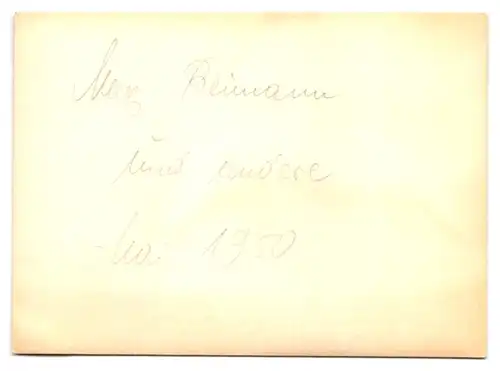 Max Reimann
und andere
Mai 1950